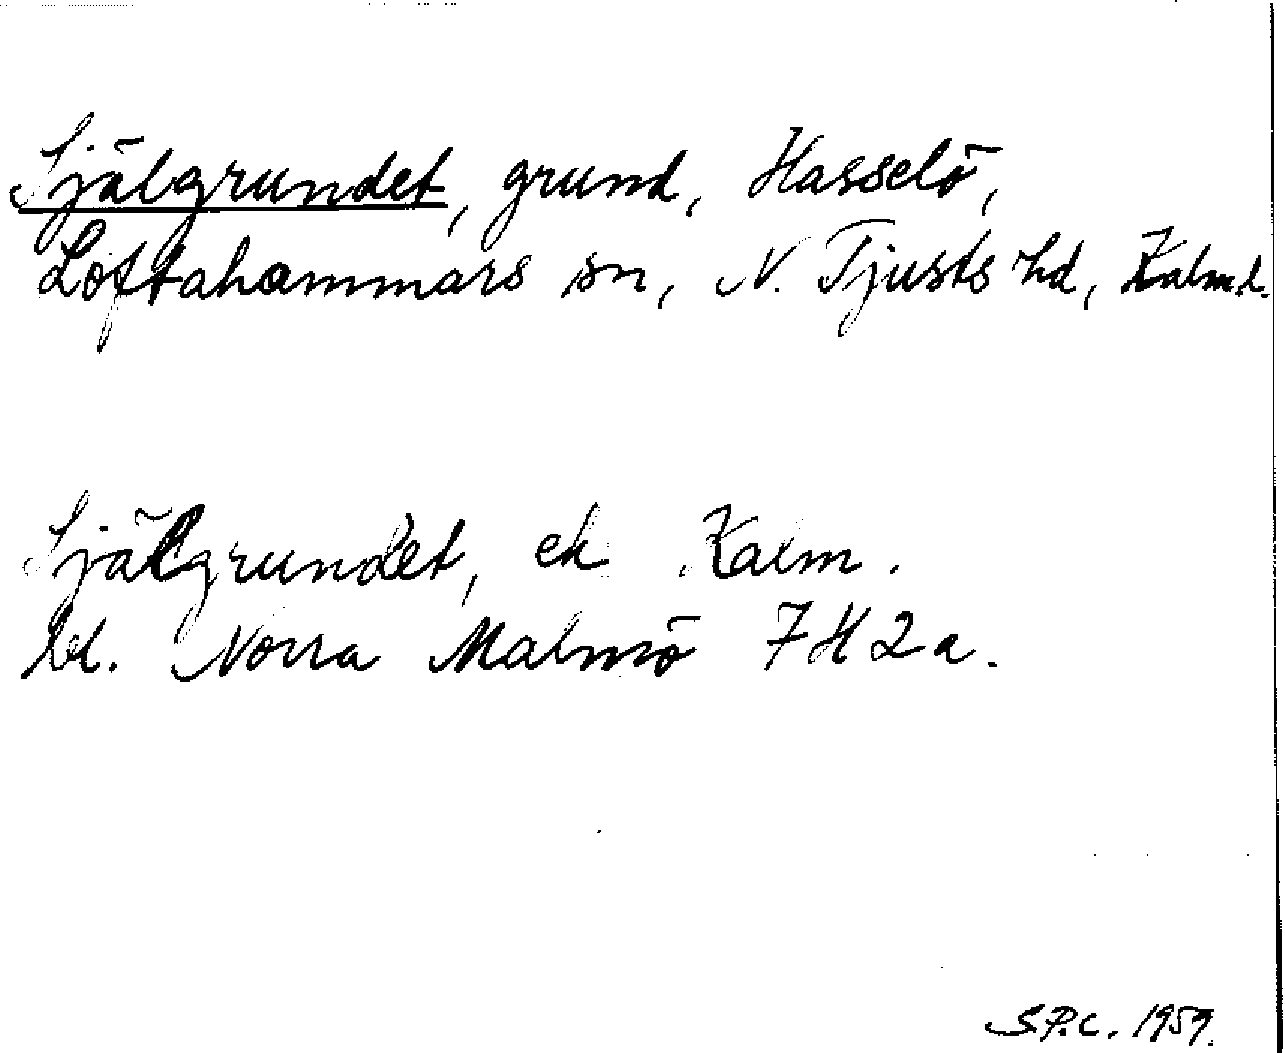 Själgrundet, grund, Hasselö,
Loftahammars sn, N. Tjusts hd, Kalm.l.
Själgrundet, ek Kalm.
bl. Norra Malmö 7H2a.
S.P.C. 1959.